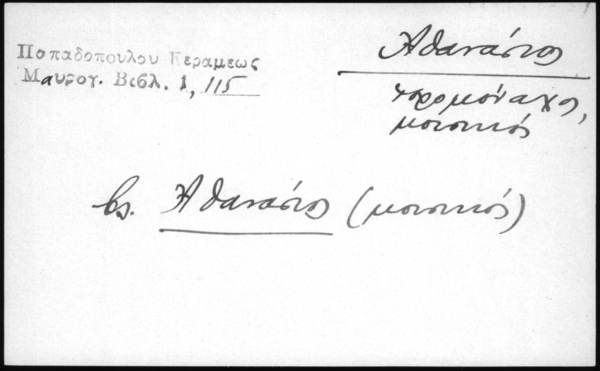 Παπαδοπούλου Κεραμεως
Μαυρογ. Βιβλ. 1, 115
Ἀθανάσιος
ἱερομόναχος,
μουσικός
βλ. Ἀθανάσιος (μουσικός)